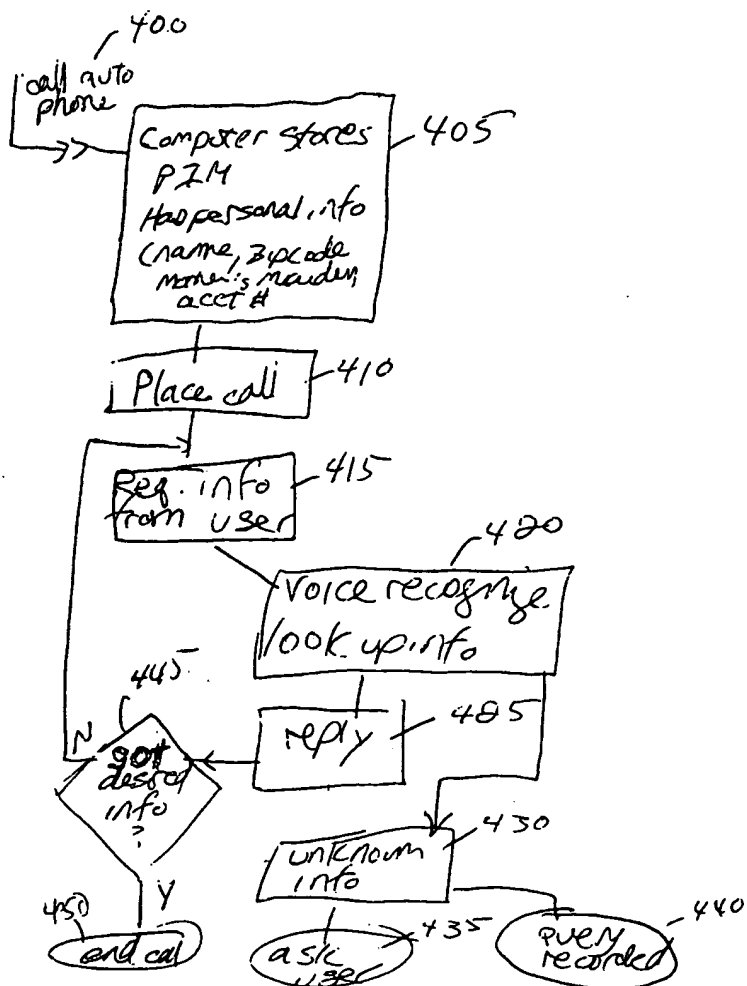 400
call auto
phone
Computer stores
PIM
Has personal info
(name, zipcode
mother's maiden,
acct #
405
Place call
410
Req. info
from user
415
420
Voice recognize
look up info
445
N
got
desired
info
?
reply
425
unknown
info
430
Y
450
end call
ask
user
435
query
recorded
440